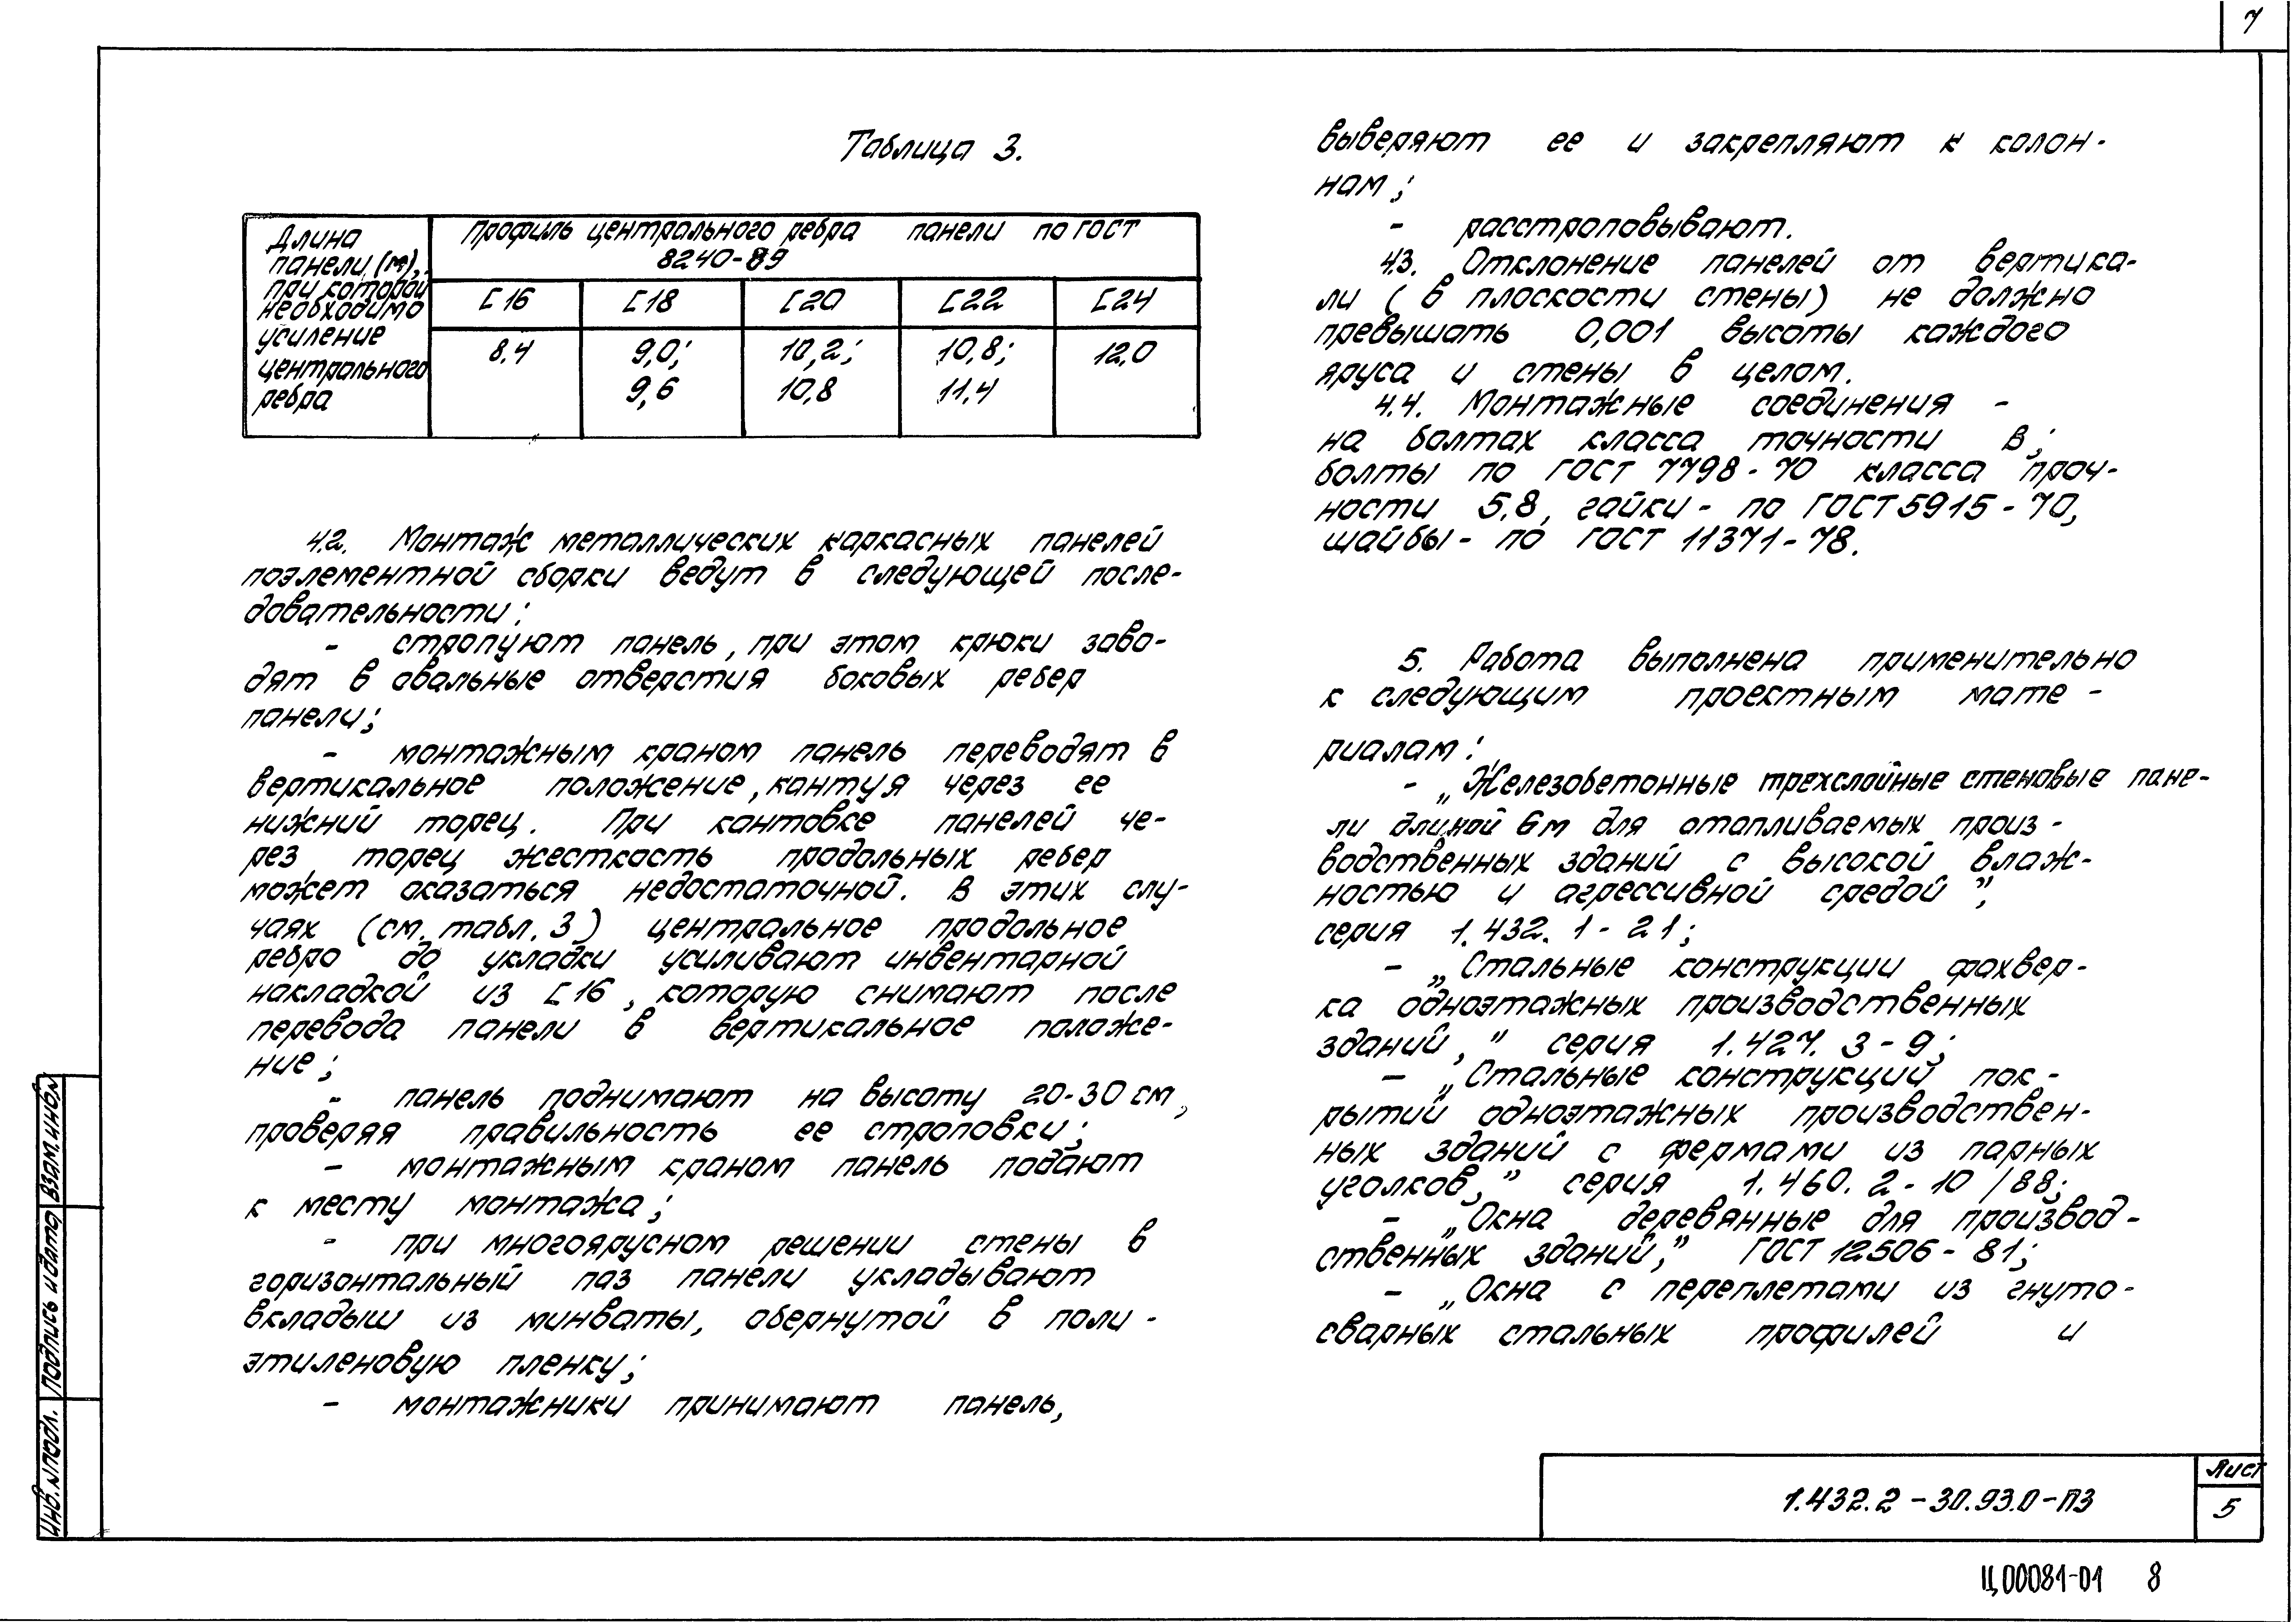 7
Таблица 3.
Длина
панели (м),
при которой
необходимо
усиление
центрального
ребра
Профиль центрального ребра панели по ГОСТ
8240-89
[16 [18 [20 [22 [24
8.4 9,0; 10,2; 10,8; 12,0
9,6 10,8 11,4
4.2. Монтаж металлических каркасных панелей
поэлементной сборки ведут в следующей после-
довательности:
- стропуют панель, при этом крюки заво-
дят в овальные отверстия боковых ребер
панели;
- монтажным краном панель переводят в
вертикальное положение, кантуя через ее
нижний торец. При кантовке панелей че-
рез торец жесткость продольных ребер
может оказаться недостаточной. В этих слу-
чаях (см. табл. 3) центральное продольное
ребро до укладки усиливают инвентарной
накладкой из [16, которую снимают после
перевода панели в вертикальное положе-
ние;
- панель поднимают на высоту 20-30 см,
проверяя правильность ее строповки;
- монтажным краном панель подают
к месту монтажа;
- при многоярусном решении стены в
горизонтальный паз панели укладывают
вкладыш из минваты, обернутой в поли-
этиленовую пленку;
- монтажники принимают панель,
выверяют ее и закрепляют к колон-
нам;
- расстроповывают.
4.3. Отклонение панелей от вертика-
ли (в плоскости стены) не должно
превышать 0,001 высоты каждого
яруса и стены в целом.
4.4. Монтажные соединения -
на болтах класса точности В;
болты по ГОСТ 7798-70 класса проч-
ности 5.8, гайки - по ГОСТ 5915-70,
шайбы - по ГОСТ 11371-78.
5. Работа выполнена применительно
к следующим проектным мате-
риалам:
- „Железобетонные трехслойные стеновые пане-
ли длиной 6м для отапливаемых произ-
водственных зданий с высокой влаж-
ностью и агрессивной средой”,
серия 1.432.1-21;
- „Стальные конструкции фахвер-
ка одноэтажных производственных
зданий,” серия 1.427.3-9;
- „Стальные конструкций пок-
рытий одноэтажных производствен-
ных зданий с фермами из парных
уголков,” серия 1.460.2-10/88;
- „Окна деревянные для производ-
ственных зданий,” ГОСТ 12506-81;
- „Окна с переплетами из гнуто-
сварных стальных профилей и
Инв.№подл. Подпись и дата Взам.инв.№
1.432.2-30.93.0-ПЗ
Лист
5
Ц00081-01 8